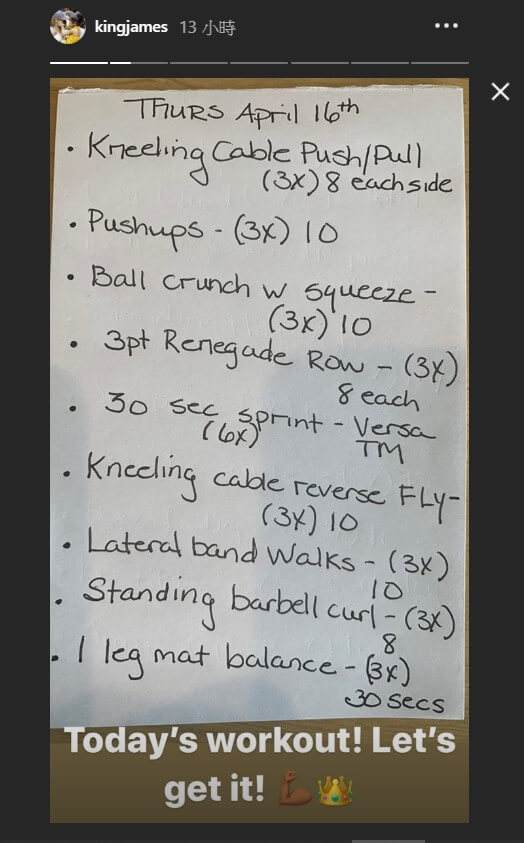 kingjames 13 小時
THURS April 16th
• Kneeling Cable Push/Pull
(3x) 8 each side
• Pushups - (3x) 10
• Ball crunch w squeeze -
(3x) 10
• 3pt Renegade Row - (3x)
8 each
• 30 sec sprint - Versa
(6x) TM
• Kneeling cable reverse FLy-
(3x) 10
• Lateral band Walks - (3x)
10
• Standing barbell curl - (3x)
8
• 1 leg mat balance - (3x)
30 secs
Today's workout! Let's
get it! 💪🏾👑